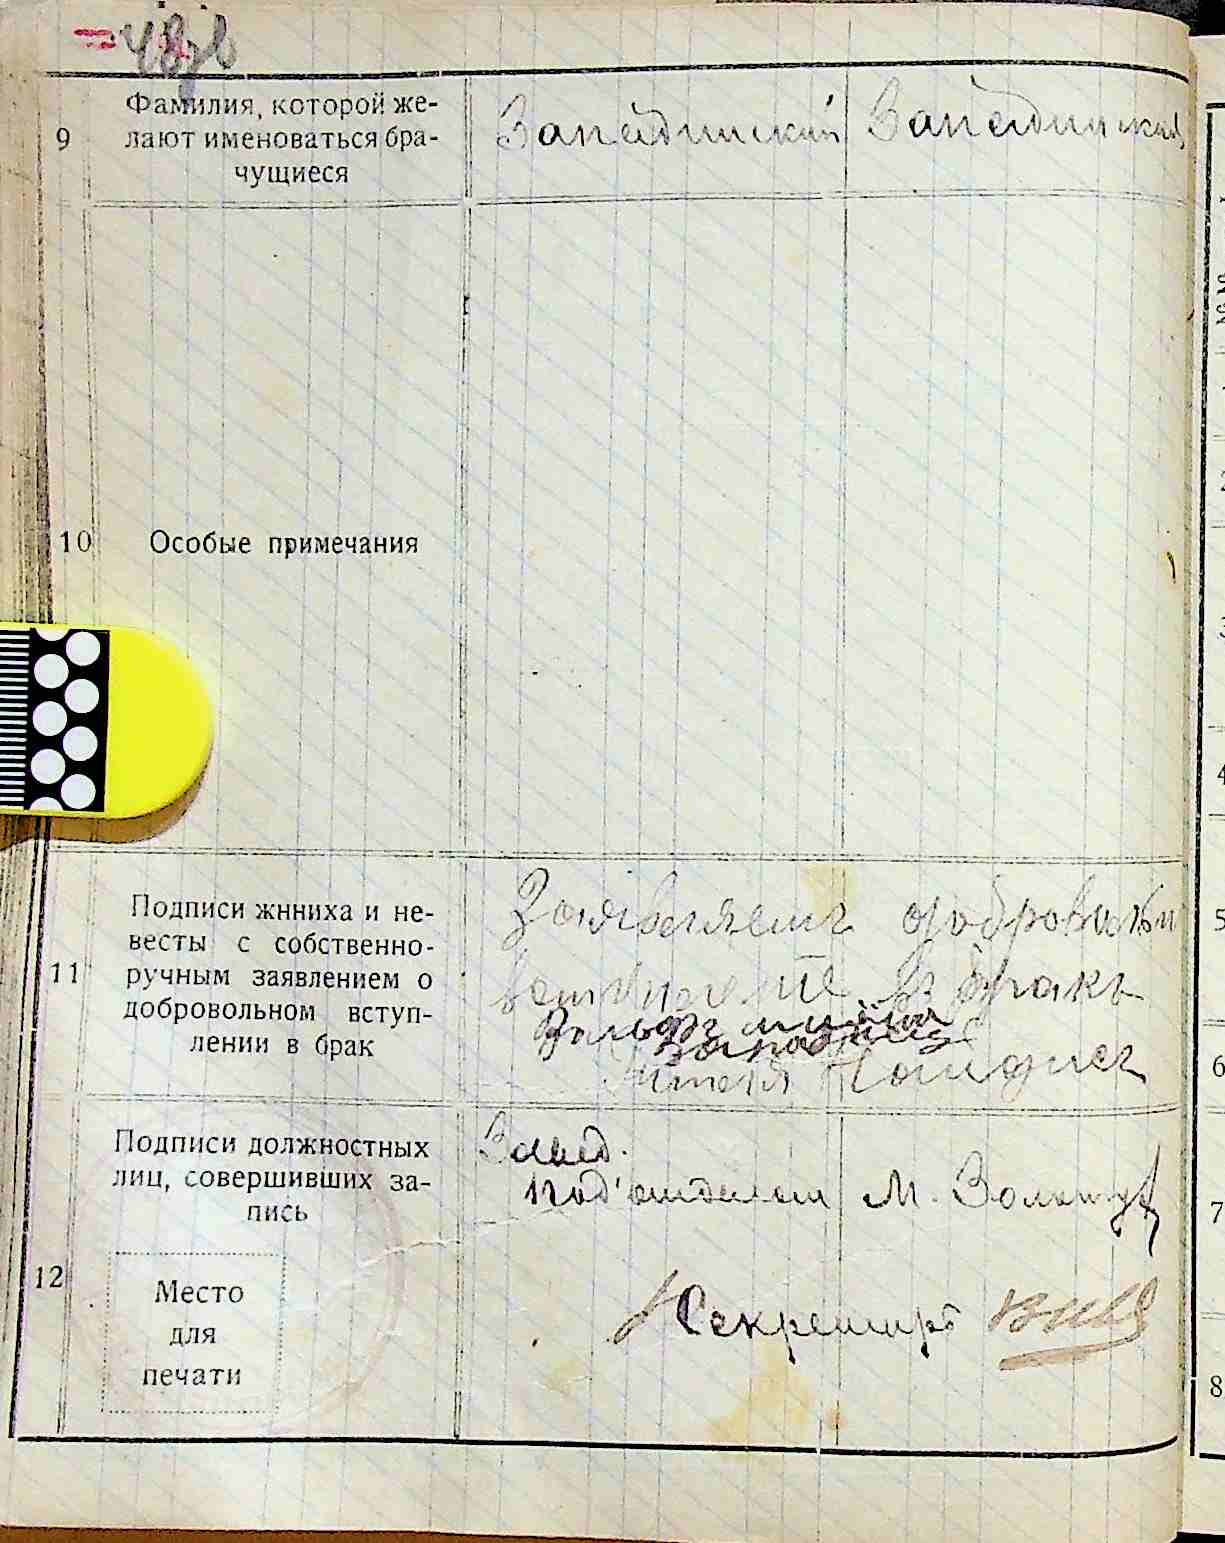 48
9
Фамилия, которой же-
лают именоваться бра-
чущиеся
Западинский Западинская
10
Особые примечания
11
Подписи жнниха и не-
весты с собственно-
ручным заявлением о
добровольном вступ-
лении в брак
Заявляем добровольн
в бракъ
12
Подписи должностных
лиц, совершивших за-
пись
Завед.
под'отделом М.
Место
для
печати
Секретарь
1
2
3
4
5
6
7
8